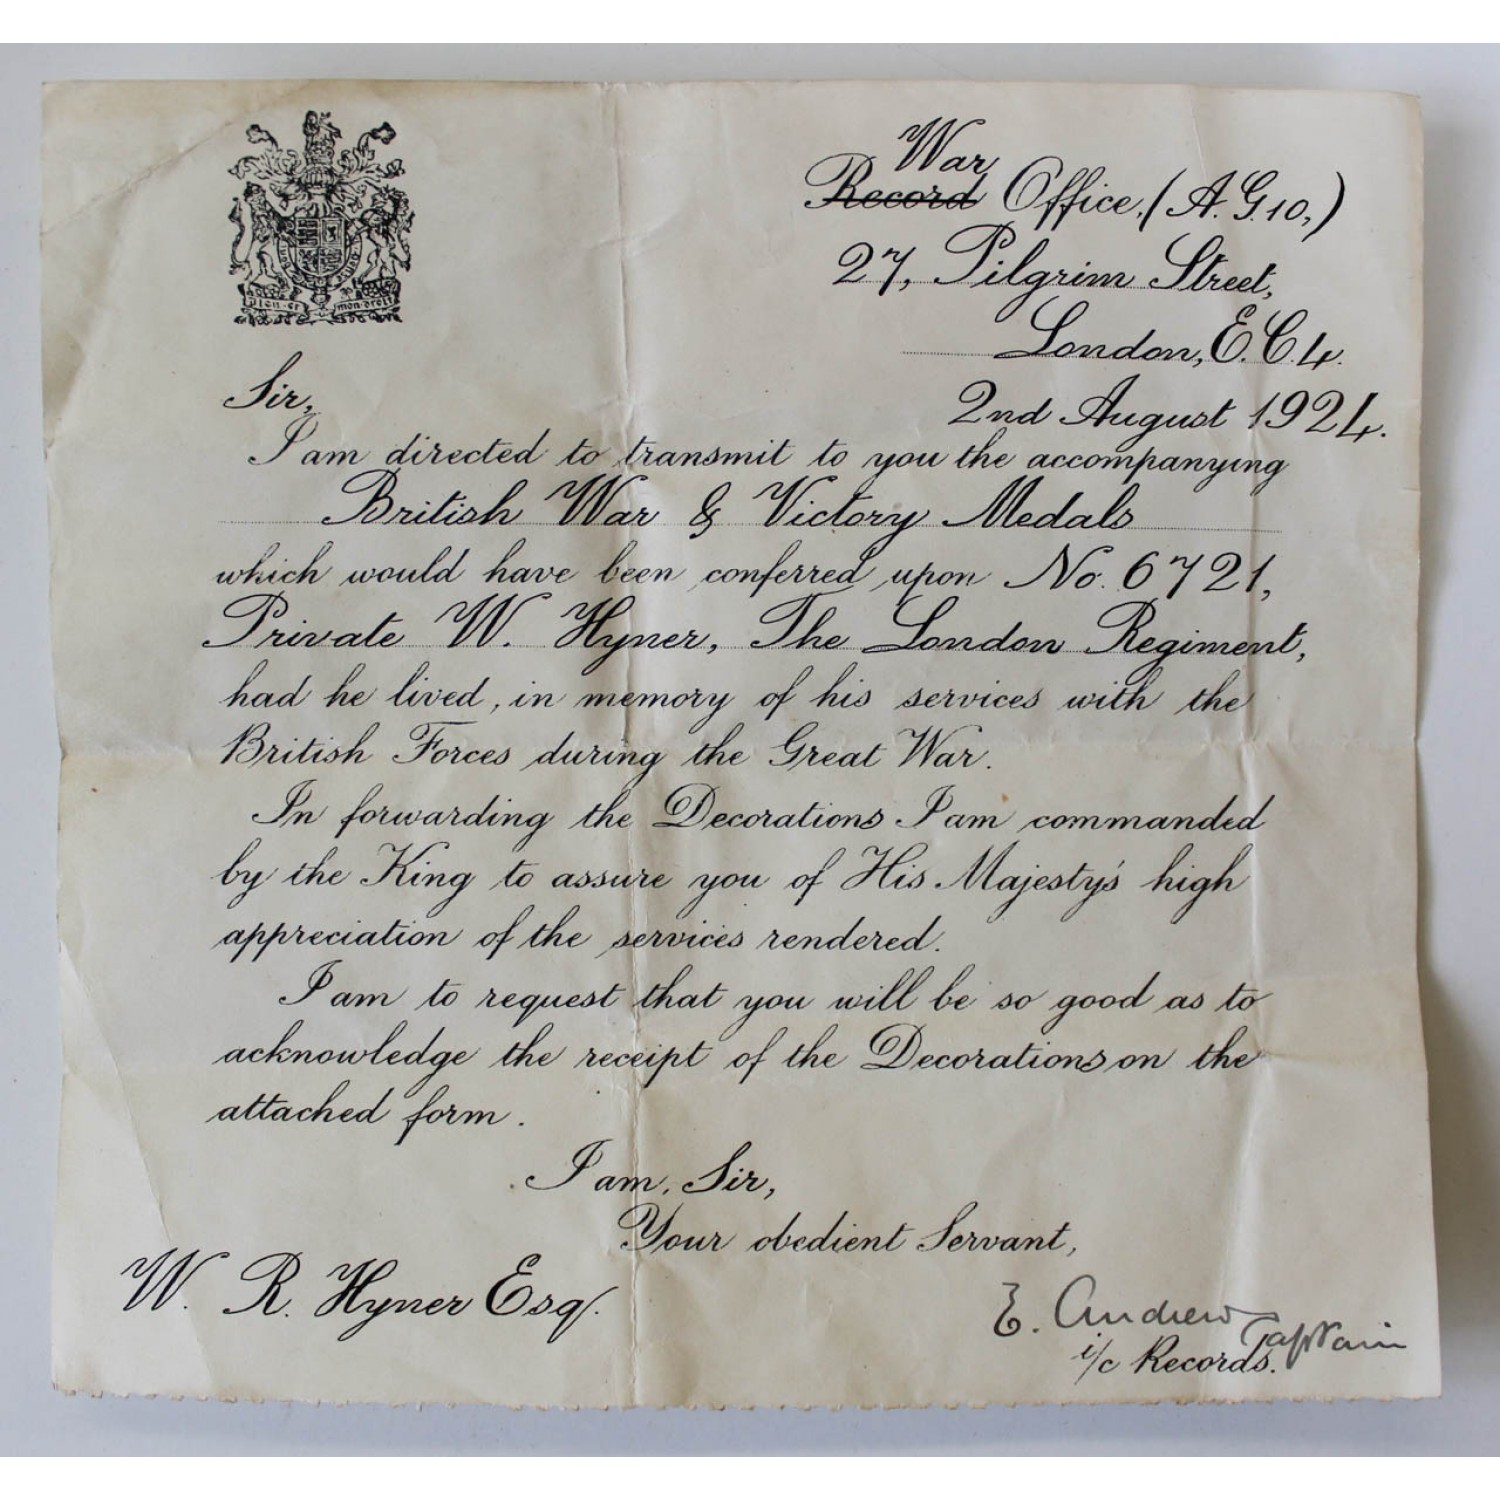 War
Record Office, (A.G.10,)
27, Pilgrim Street,
London, E.C.4.
2nd August 1924.
Dieu et mon droit
Sir,
I am directed to transmit to you the accompanying
British War & Victory Medals
which would have been conferred upon No. 6721,
Private W. Hyner, The London Regiment,
had he lived, in memory of his services with the
British Forces during the Great War.
In forwarding the Decorations I am commanded
by the King to assure you of His Majesty's high
appreciation of the services rendered.
I am to request that you will be so good as to
acknowledge the receipt of the Decorations on the
attached form.
I am, Sir,
Your obedient Servant,
W. R. Hyner Esq.
E. Andrew Captain
i/c Records.